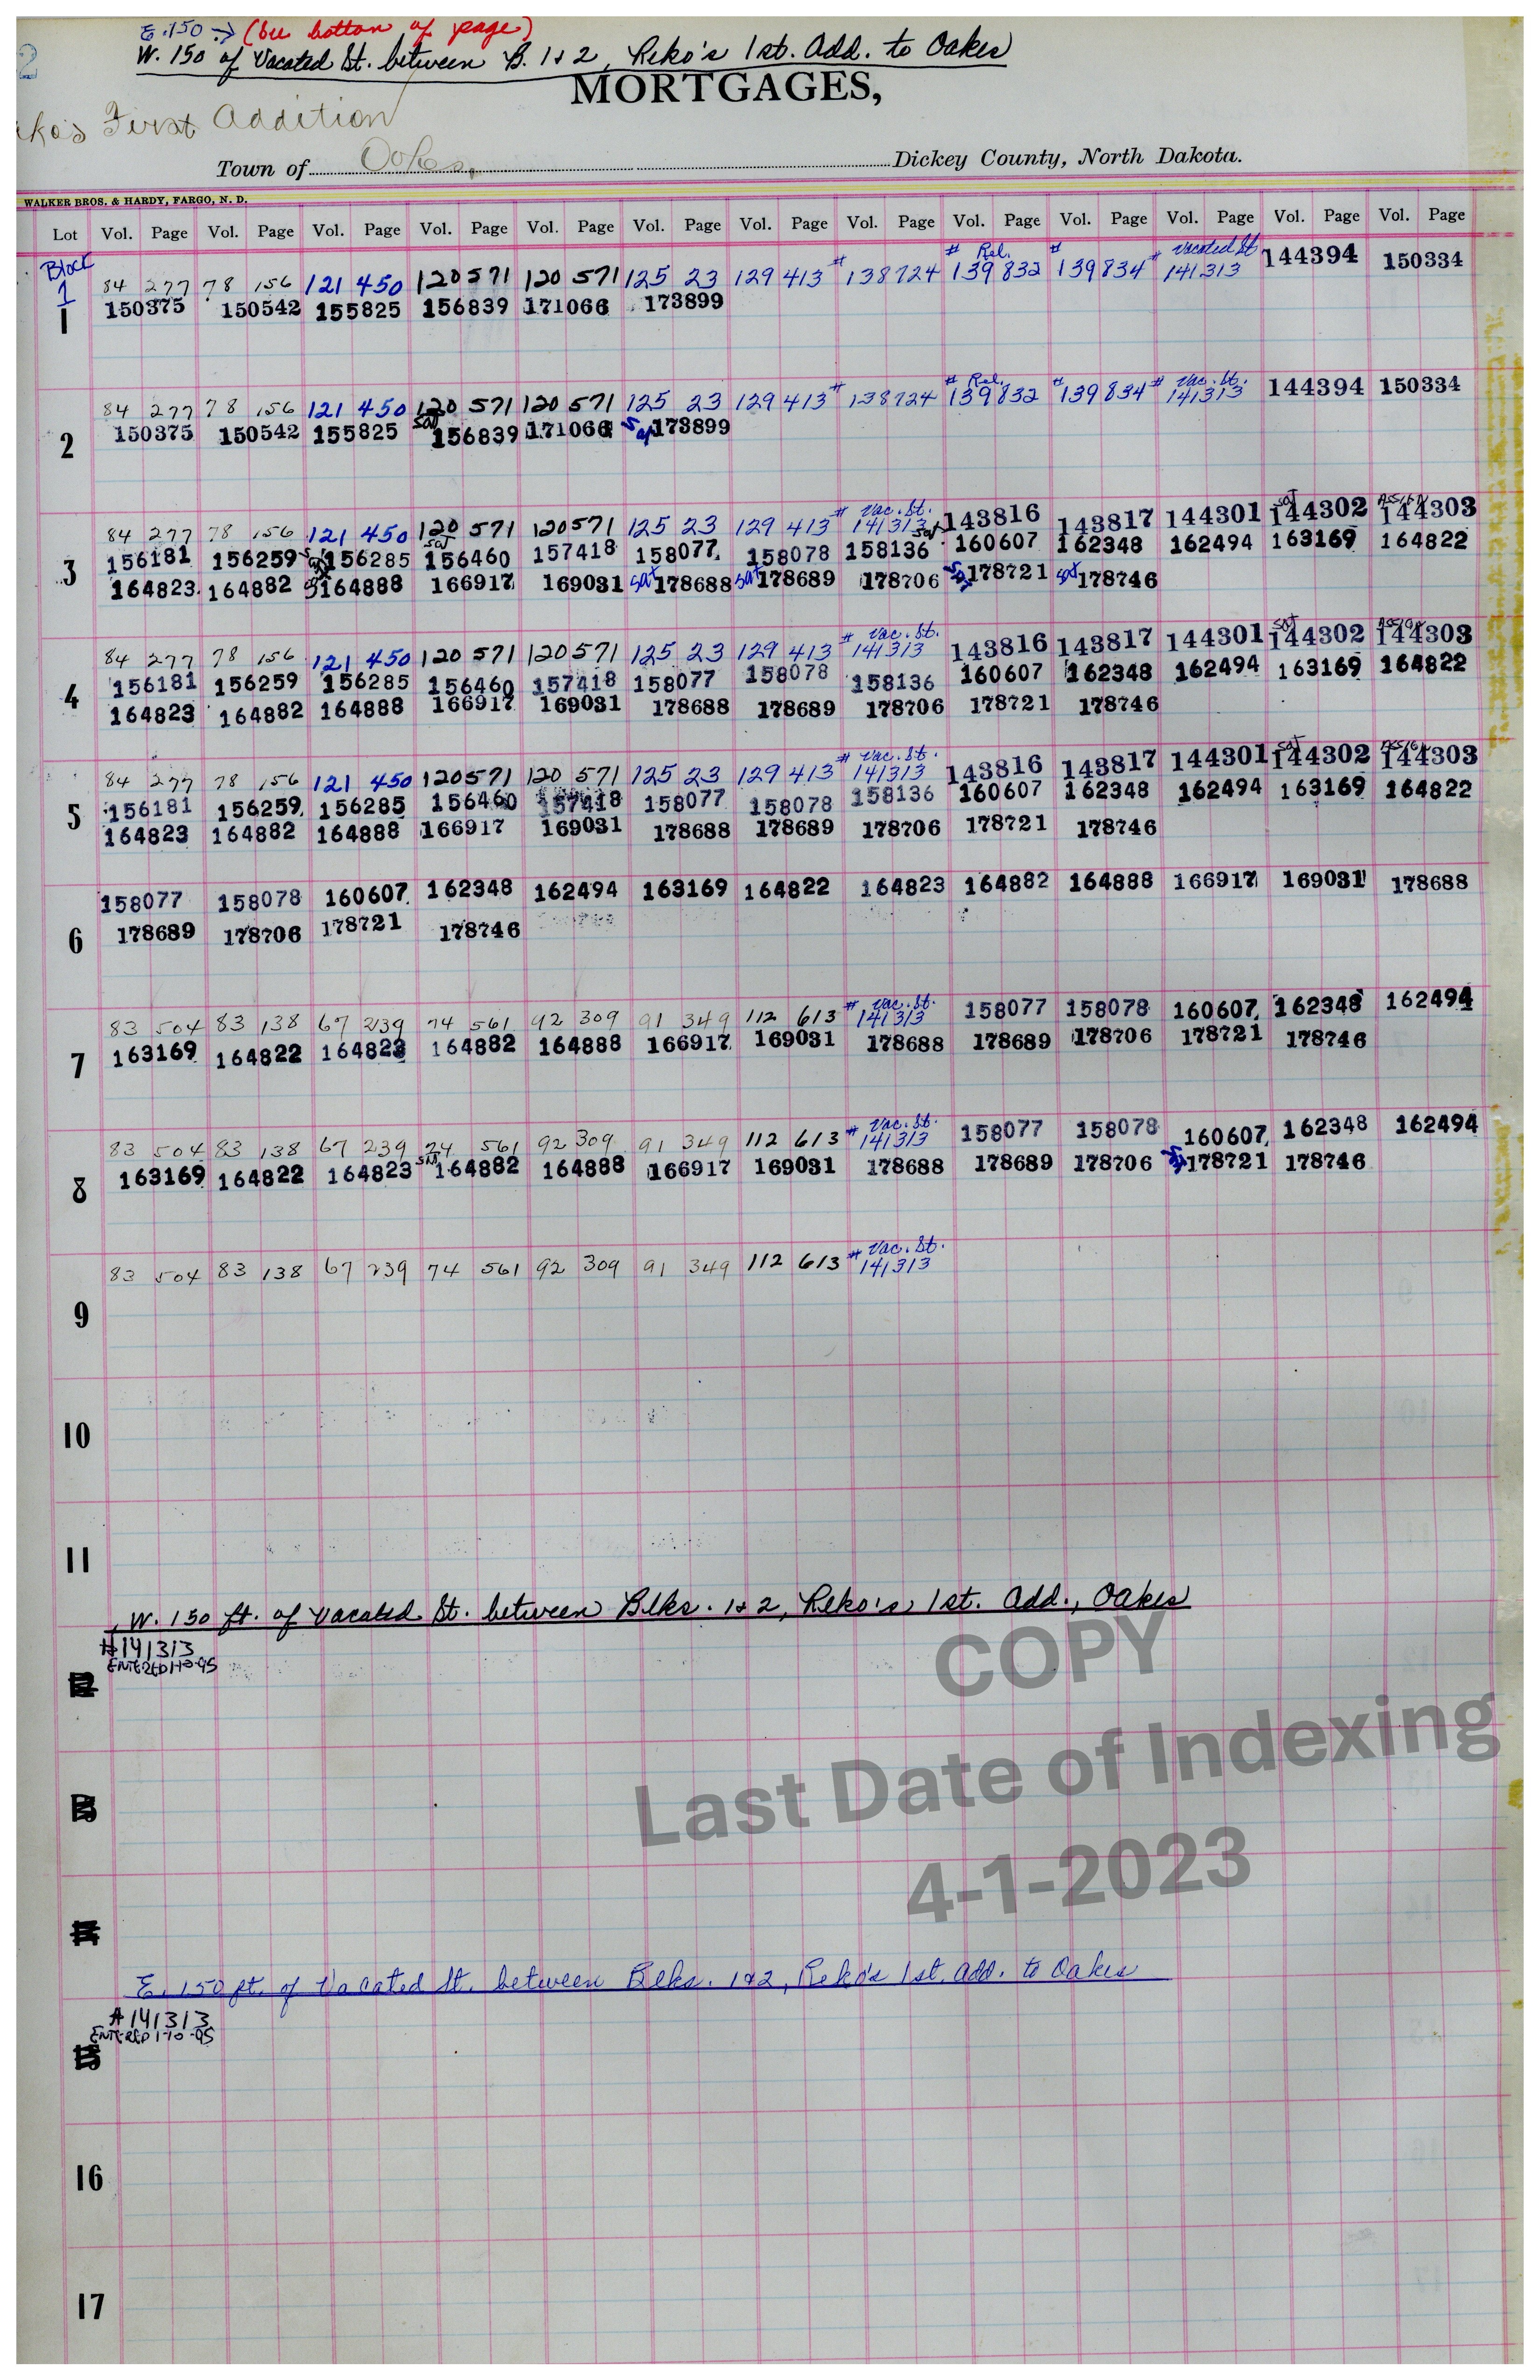 E. 150 → (See bottom of page)
W. 150 of Vacated St. between B. 1 & 2, Reko's 1st. Add. to Oakes
2
MORTGAGES,
eko's First Addition
Town of Oakes, Dickey County, North Dakota.
WALKER BROS. & HARDY, FARGO, N. D.
Lot Vol. Page Vol. Page Vol. Page Vol. Page Vol. Page Vol. Page Vol. Page Vol. Page Vol. Page Vol. Page Vol. Page Vol. Page Vol. Page
Block # Rel. # # Vacated St.
1 84 277 78 156 121 450 120 571 120 571 125 23 129 413 # 138724 139832 139834 141313 144394 150334
1 150375 150542 155825 156839 171066 173899
# Rel. # # Vac. St.
84 277 78 156 121 450 120 571 120 571 125 23 129 413 # 138724 139832 139834 141313 144394 150334
2 150375 150542 155825 Sat 156839 171066 Sat 173899
# Vac. St. Sat Assign
84 277 78 156 121 450 120 571 120 571 125 23 129 413 141313 Sat 143816 143817 144301 144302 144303
3 156181 156259 Sat 156285 Sat 156460 157418 158077 158078 158136 160607 162348 162494 163169 164822
164823 164882 164888 166917 169031 Sat 178688 Sat 178689 178706 Sat 178721 Sat 178746
# Vac. St. Sat Assign
84 277 78 156 121 450 120 571 120 571 125 23 129 413 141313 143816 143817 144301 144302 144303
4 156181 156259 156285 156460 157418 158077 158078 158136 160607 162348 162494 163169 164822
164823 164882 164888 166917 169031 178688 178689 178706 178721 178746
# Vac. St. Sat Assign
84 277 78 156 121 450 120 571 120 571 125 23 129 413 141313 143816 143817 144301 144302 144303
5 156181 156259 156285 156460 157418 158077 158078 158136 160607 162348 162494 163169 164822
164823 164882 164888 166917 169031 178688 178689 178706 178721 178746
158077 158078 160607 162348 162494 163169 164822 164823 164882 164888 166917 169031 178688
6 178689 178706 178721 178746
# Vac. St.
83 504 83 138 67 239 74 561 92 309 91 349 112 613 141313 158077 158078 160607 162348 162494
7 163169 164822 164823 164882 164888 166917 169031 178688 178689 178706 178721 178746
# Vac. St.
83 504 83 138 67 239 74 561 92 309 91 349 112 613 141313 158077 158078 160607 162348 162494
8 163169 164822 164823 Sat 164882 164888 166917 169031 178688 178689 178706 178721 178746
# Vac. St.
83 504 83 138 67 239 74 561 92 309 91 349 112 613 141313
9
10
11
W. 150 ft. of Vacated St. between Blks. 1 & 2, Reko's 1st. Add., Oakes
#141313
ENTERED 1-10-95
COPY
Last Date of Indexing
4-1-2023
E. 150 ft. of Vacated St. between Blks. 1 & 2, Reko's 1st. Add. to Oakes
#141313
ENTERED 1-10-95
16
17